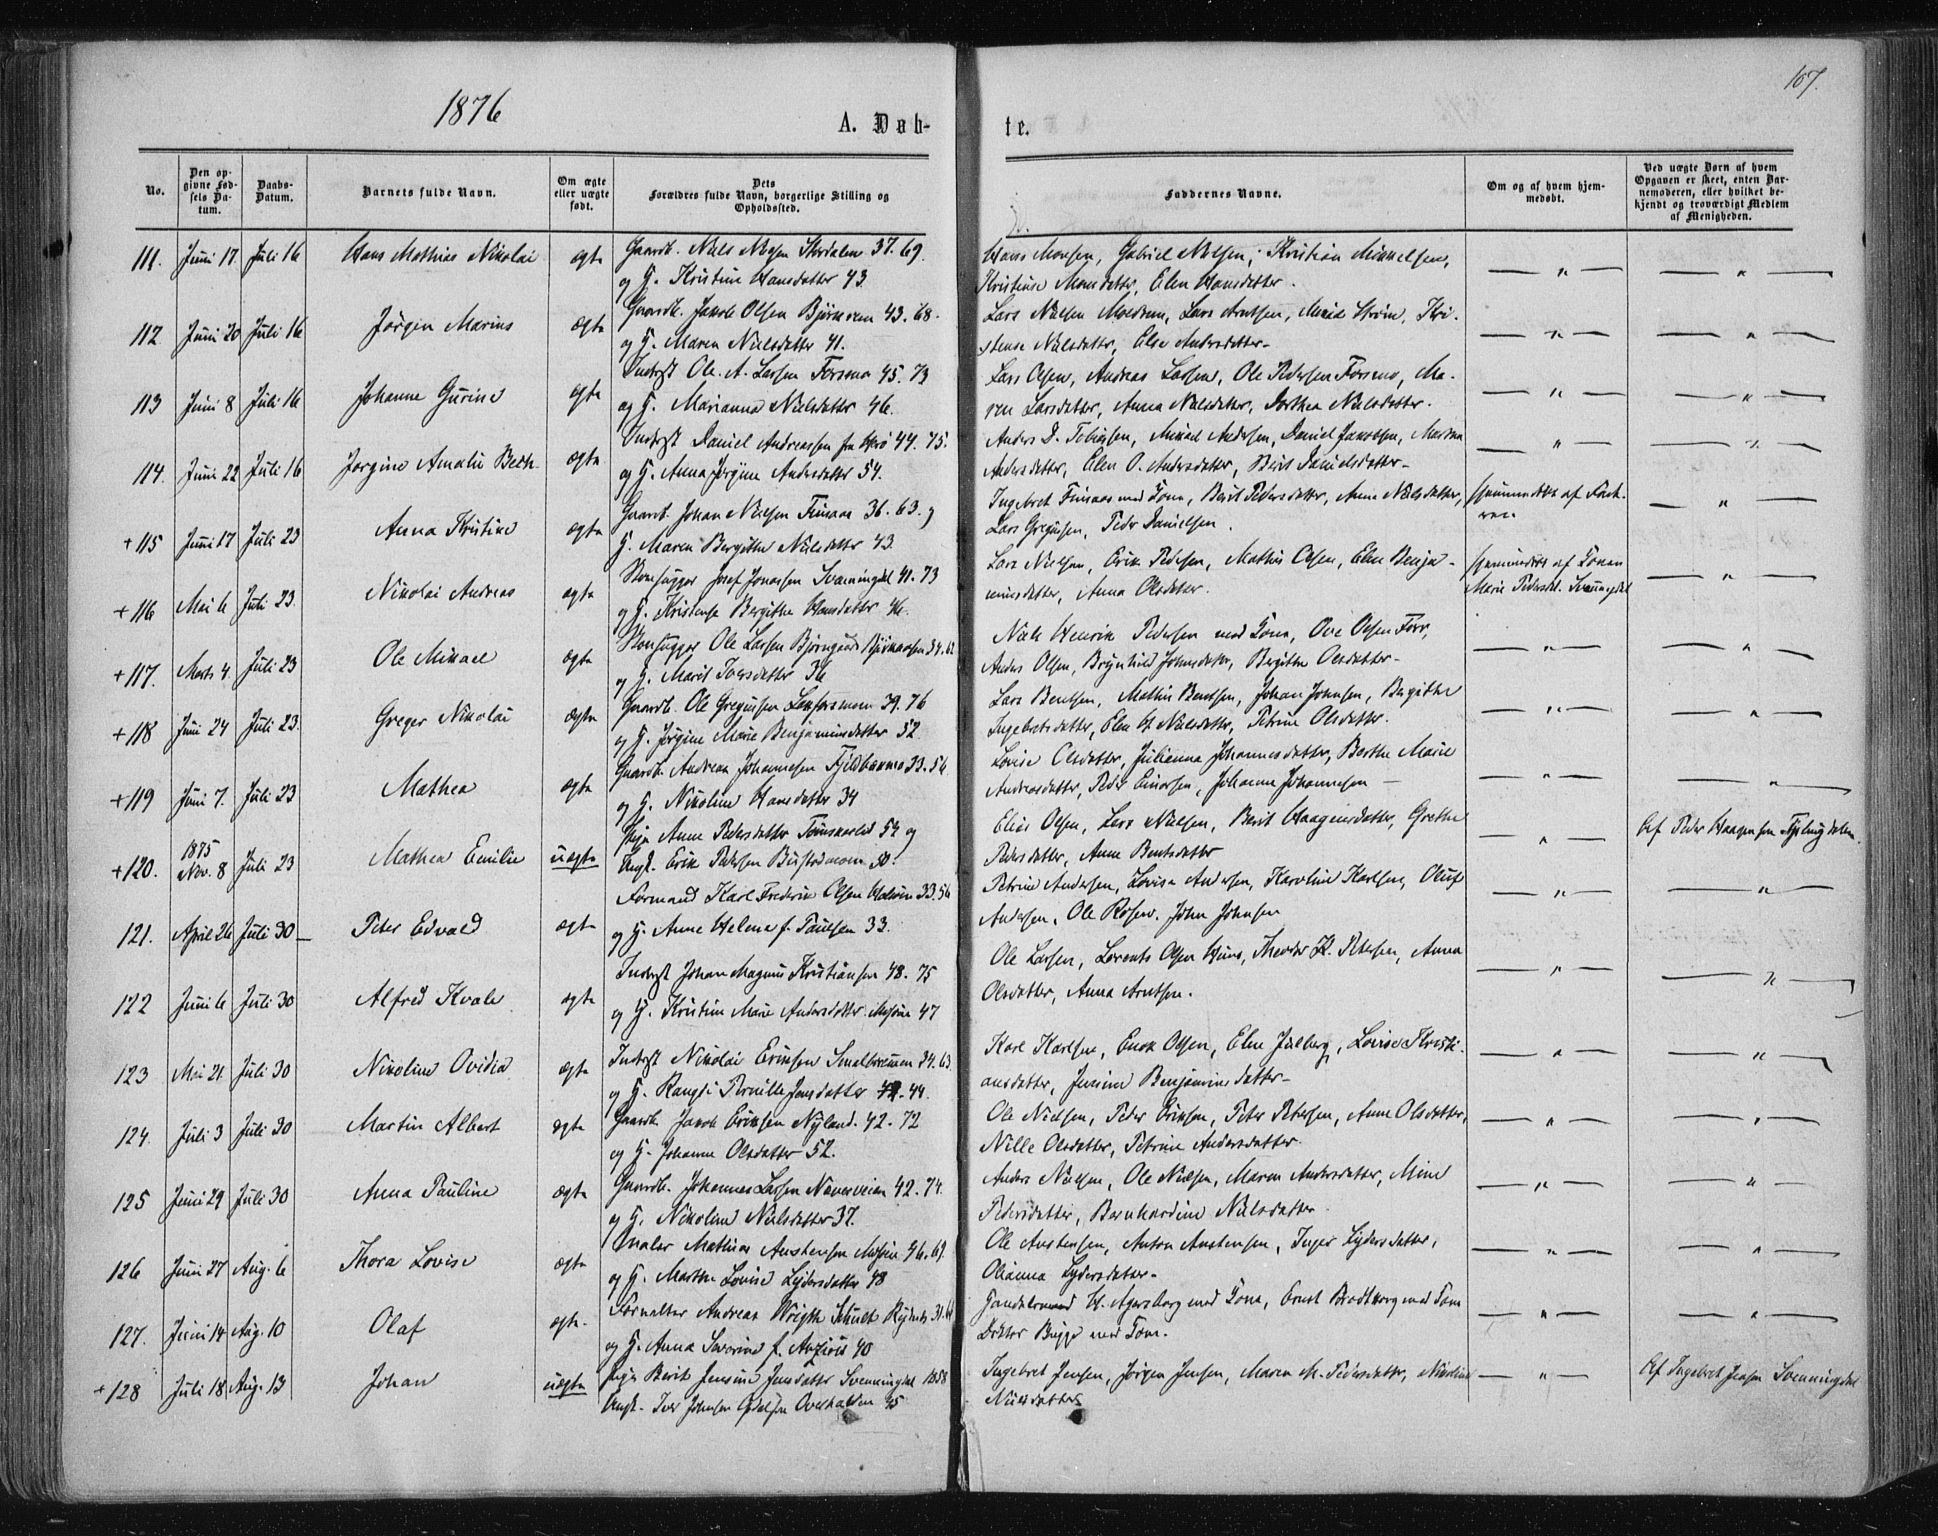 1876
107.
A. Døb-
te.
No.
Den opgivne Fødsels Datum.
Daabs-Datum.
Barnets fulde Navn.
Om ægte eller uægte født.
Dets Forældres fulde Navn, borgerlige Stilling og Opholdssted.
Faddernes Navne.
Om og af hvem hjemmedøbt.
Ved uægte Børn af hvem Opgaven er skeet, enten Barnemoderen, eller hvilket bekjendt og troværdigt Medlem af Menigheden.
111. Juni 17. Juli 16 Hans Mathias Nikolai ægte Gaardb. Niels Nilsen Stordalen 37. 69.
og H. Kristine Hansdatter 43.
Hans Monsen, Gabriel Nilsen, Kristian Mikkelsen,
Kristine Monsdatter, Elen Hansdatter.
112 Juni 20 Juli 16 Jørgen Marius ægte Gaardb. Jakob Olsen 43. 68.
og H. Maren Nielsdatter 41.
Lars Nielsen, Lars Arntsen, Strøm, Kri-
stense Nilsdatter, Else Andersdatter
113 Juni 8 Juli 16 Johanne Gurine ægte Inderst Ole A. Larsen Forsmo 45. 73
og H. Marianna Nielsdatter 46.
Lars Olsen, Andreas Larsen, Ole Pedersen Forsmo, Ma-
ren Larsdatter, Anna Nilsdatter, Dorthea Nilsdatter.
114. Juni 22 Juli 16 Jørgine Amalie Berh. ægte Inderst Daniel Andreassen fra 44. 75.
og H. Anna Jørgine Andersdatter 54.
Anders D. Tobiasen, Mikael Andersen, Daniel Jakobsen,
Andersdatter, Elen O. Andersdatter, Berit Danielsdatter
+115 Juni 17 Juli 23 Anna Kristine ægte Gaardb. Johan Nielsen Finsaas 36. 63. og
H. Maren Bergithe Nielsdatter 43.
Ingebret Finsaas med Kone, Berit Pedersdatter, Anne Nilsdatter,
Lars Gregusen, Peder Danielsen.
Hjemmedøbt af Fad-
+116 Mai 6 Juli 23. Nikolai Andreas ægte Josef Jonassen Svenningdal 41. 73
og H. Kristense Bergithe Hansdatter 46.
Lars Nielsen, Erik Pedersen, Mathis Olsen, Elen Benja-
minsdatter, Anna Olsdatter.
Hjemmedøbt af Konen
Marie Pedersd. Svenningdal
+117. Marts 4. Juli 23 Ole Mikael ægte Ole Larsen 34. 62
og H. Marit Iversdatter 36
Niels Henrik Pedersen med Kone, Ove Olsen,
Anders Olsen, Brynhild Johnsdatter, Bergitte Olsdatter
+118 Juni 24 Juli 23. Greger Nikolai ægte Gaardb. Ole Gregusen Laxforsmoen 39. 76
og H. Jørgine Marie Benjaminsdatter 52
Lars Bentsen, Mathis Bentsen, Johan Johnsen, Bergithe
Ingebretsdatter, Elen H Nilsdatter, Petrine Olsdatter.
+119 Juni 7. Juli 23 Mathea ægte Gaardb. Andreas Johannesen 23. 56
og H. Nikoline Hansdatter 34
Lovise Olsdatter, Julianna Johannesdatter, Berthe Marie
Andreasdatter, Peder Einarsen, Johannes Johannesen
+120. 1875 Nov. 8 Juli 23 Mathea Emilie uægte Pige Anne Pedersdatter 54 og
Ungk. Erik Pedersen 50.
Elias Olsen, Lars Nielsen, Berit Haagensdatter, Grethe
Pedersdatter, Anne Bentsdatter
Af Peder Haagensen
121. April 26 Juli 30 Peter Edvald ægte Formand Karl Frederik Olsen 33. 56
og H. Anne Helena f. Paulsen 33.
Petrine Andersen, Lovise Andersen, Karoline Karlsen, Oluf
Andersen, Ole Rosen. John Johnsen
122 Juni 6 Juli 30 Alfred Kvale ægte Inderst Johan Magnus Kristiansen 48. 75
og H. Kristine Marie Andersdatter Mosjøen 47
Ole Larsen, Lorents Olsen, Theodor K. Petersen, Anna
Olsdatter, Anna Arntsen.
123 Mai 21 Juli 30 Nikoline Ovidia ægte Inderst Nikolai Eriksen 34. 63
og H. Pernille Jensdatter 44.
Karl Karlsen, Enok Olsen, Elen, Lovise Kristi-
ansdatter, Jensine Benjaminsdatter
124. Juli 3 Juli 30 Martin Albert ægte Gaardb. Jakob Eriksen Nyland. 42. 72
og H. Johanne Olsdatter 52.
Ole Nielsen, Peder Eriksen, Peter Petersen, Anne Olsdatter,
Nille Olsdatter, Petrine Andersdatter
125 Juni 29 Juli 30 Anna Pauline ægte Gaardb. Johannes Larsen 42. 74.
og H. Nikoline Nielsdatter 37.
Anders Nielsen, Ole Nielsen, Maren Andersdatter, Mine
Pedersdatter, Bernhardine Nielsdatter
126 Juni 27 Aug. 6 Thora Lovise ægte Maler Mathias Austensen Mosjøen 46. 69.
og H. Marthe Lovise Lydersdatter 48
Ole Austensen, Anton Austensen, Inger Lydersdatter,
Olianna Lydersdatter
127. Juni 14 Aug. 10 Olaf ægte. Forvalter Andreas Wrigth Schult 31.
og H. Anna Severine f. 40
H. Agersborg med Kone, Ernst Brodtkorb med Kone
Doktor Bugge med Kone.
+128 Juli 18 Aug. 13 Johan uægte Pige Berit Jensine Jensdatter Svenningdal 1858
Ungk. Iver Johnsen Overhalden 45
Ingebret Jensen, Jørgen Jensen, Maren M. Pedersdatter, Nikoline
Nilsdatter
Af Ingebret Jensen Svenningdal